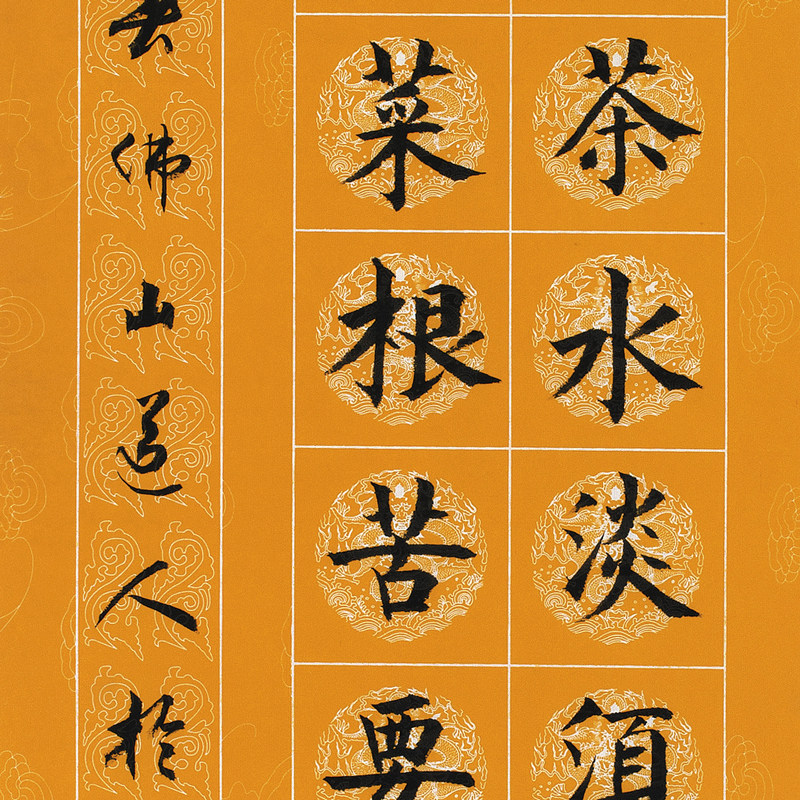 茶水淡須
菜根苦要
佛山道人於